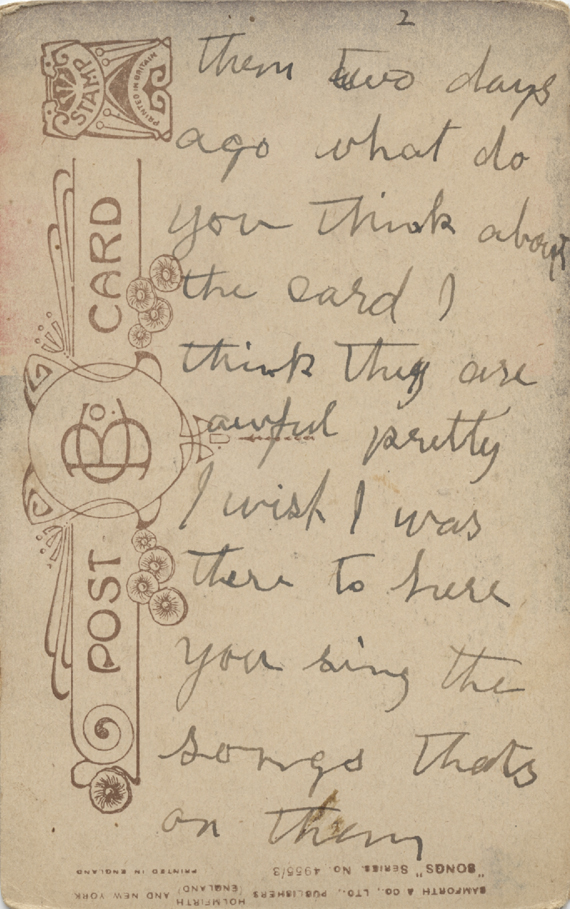 2
them two days
ago what do
you think about
the card I
think they are
awful pretty
I wish I was
there to here
you sing the
songs thats
on them
STAMP
PRINTED IN BRITAIN
POST CARD
B Co.
"SONGS" SERIES. No. 4955/3
PRINTED IN ENGLAND
BAMFORTH & CO., LTD., PUBLISHERS (ENGLAND)
HOLMFIRTH AND NEW YORK